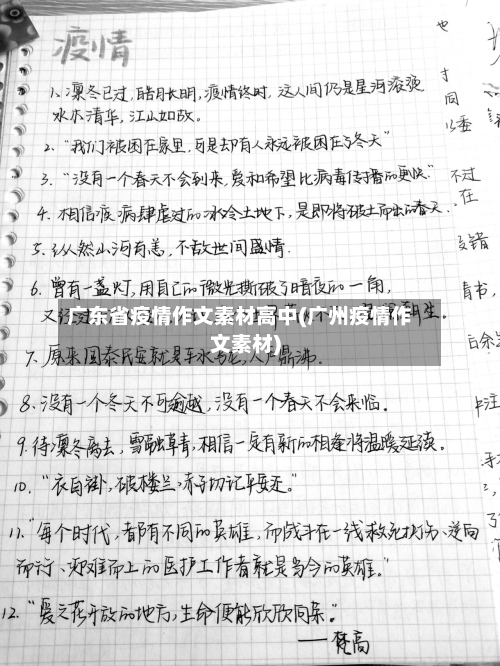 疫情
1、凛冬已过,皓月长明,疫情终时,这人间仍是星河滚烫
水木清华,江山如故。
2、"我们被困在家里,可是却有人永远被困在了冬天"
3、"没有一个春天不会到来,爱和希望比病毒传播的更快."
4、相信疫病肆虐过的冰冷土地下,是即将破土而出的春天.
5、纵然山河有恙,不敌世间盛情.
6、曾有一盏灯,用自己的微光撕破了暗夜的一角,
广东省疫情作文素材高中(广州疫情作
文素材)
7、原来国泰民安就是车水马龙,人声鼎沸.
8、没有一个冬天不可逾越,没有一个春天不会来临.
9.待凛冬离去,雪融草青,相信一定有新的相逢将温暖延续.
10、"衣白褂,破楼兰,赤子切记平安还."
11、"每个时代,都有不同的英雄,而战斗在一线救死扶伤、逆向
而行、迎难而上的医护工作者就是当今的英雄."
12、"爱之花开放的地方,生命便能欣欣向荣."
——梵高
也
才
同
以委
不过
在
青书,